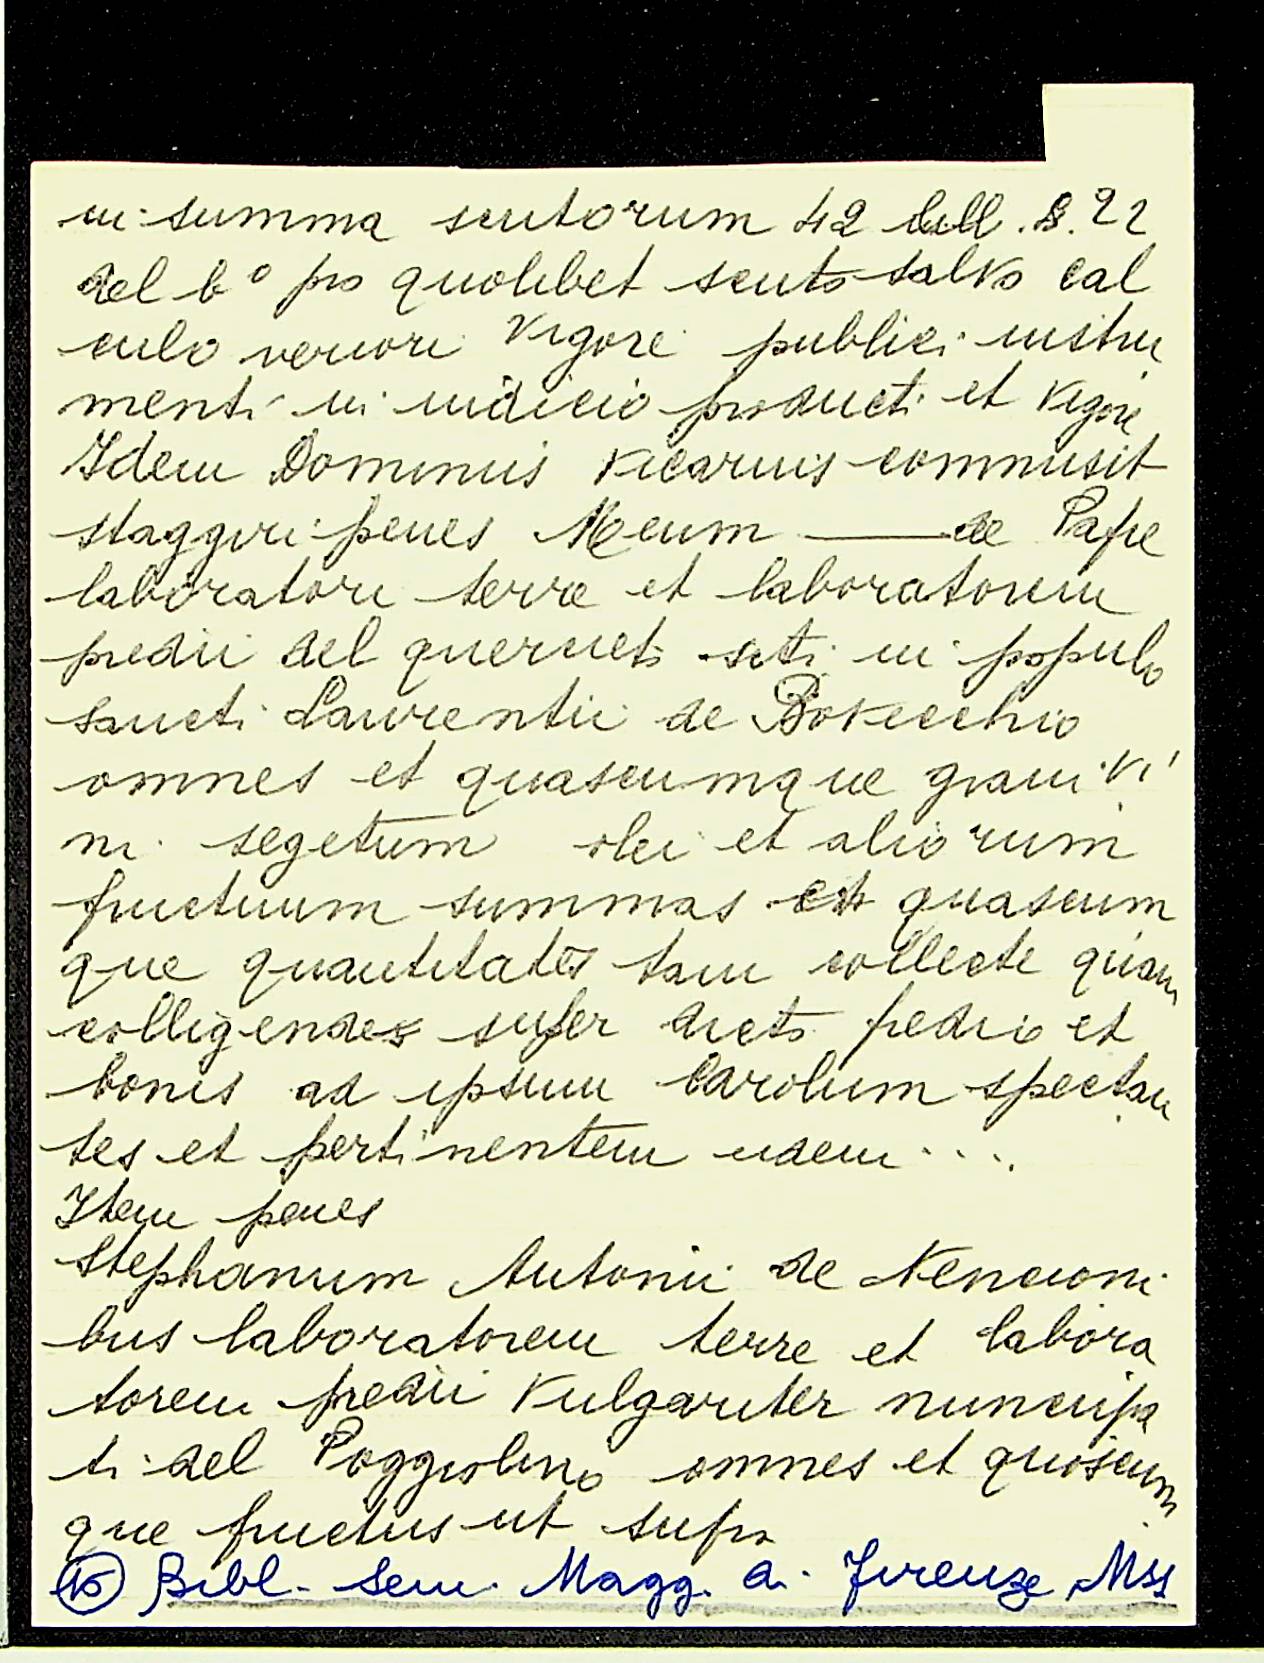 in summa scutorum 42 bill. s. 22
del b° pro quolibet scuto salvo cal
culo veriori Vigore publici instru
menti in indicio producti et vigore
Idem Dominus Vicarius commisit
staggiri penes Meum ——— de Pape
laboratori terre et laboratorem
predii del querceto siti in populo
Sancti Laurentii de Bovecchio
omnes et quascumque grani vi
ni segetum olei et aliorum
fructuum summas et quascum
que quantitates tam collecte quam
colligendes super dicto pedio et
bonis ad ipsum Carolum spectan
tes et pertinentem eidem ....
Item penes
Stephanum Antonii de Nencioni
bus laboratorem terre et labora
torem predii Vulgariter nuncupa
ti del Poggiolino omnes et quoscum
que fructus ut supra
15 Bibl. Sem. Magg. a. Firenze Mss